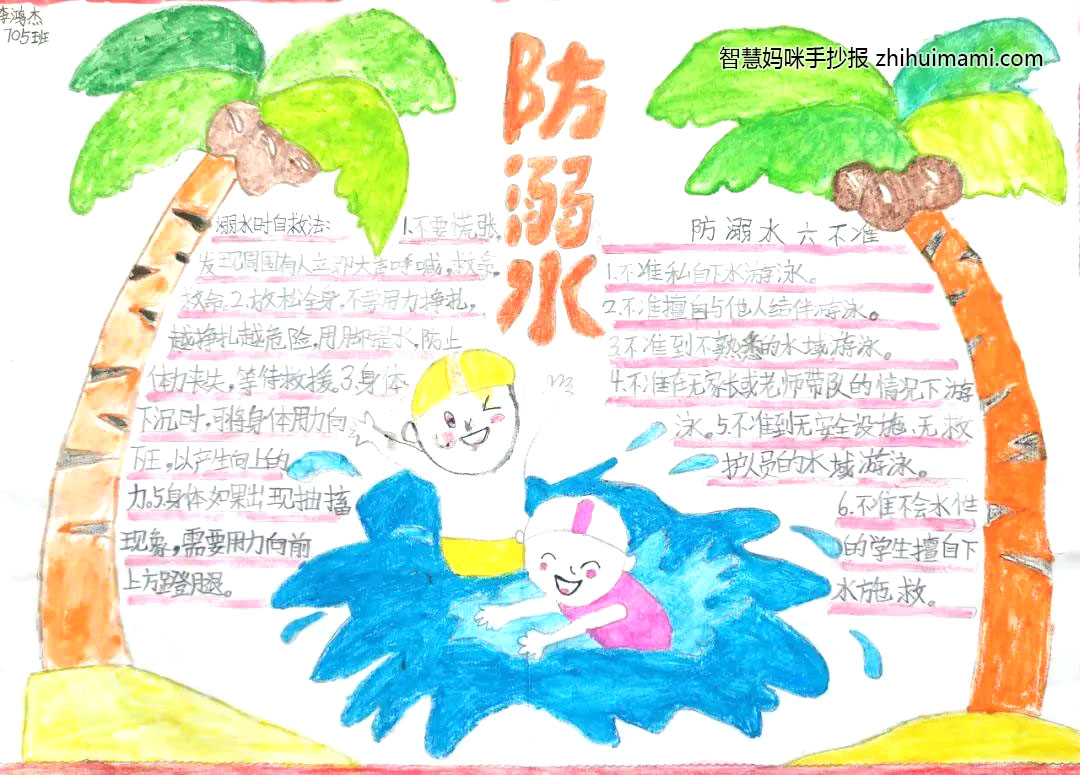 李鸿杰
705班
智慧妈咪手抄报 zhihuimami.com
防溺水
溺水时自救法: 1.不要慌张,
发现周围有人立即大声呼喊,救命,
救命.2.放松全身,不要用力挣扎,
越挣扎越危险,用脚踢水,防止
体力丧失,等待救援.3.身体
下沉时,可将身体用力向
下压,以产生向上的
力.5.身体如果出现抽搐
现象,需要用力向前
上方蹬腿。
防溺水六不准
1.不准私自下水游泳。
2.不准擅自与他人结伴游泳。
3.不准到不熟悉的水域游泳。
4.不准在无家长或老师带队的情况下游
泳。5.不准到无安全设施、无救
护人员的水域游泳。
6.不准不会水性
的学生擅自下
水施救。